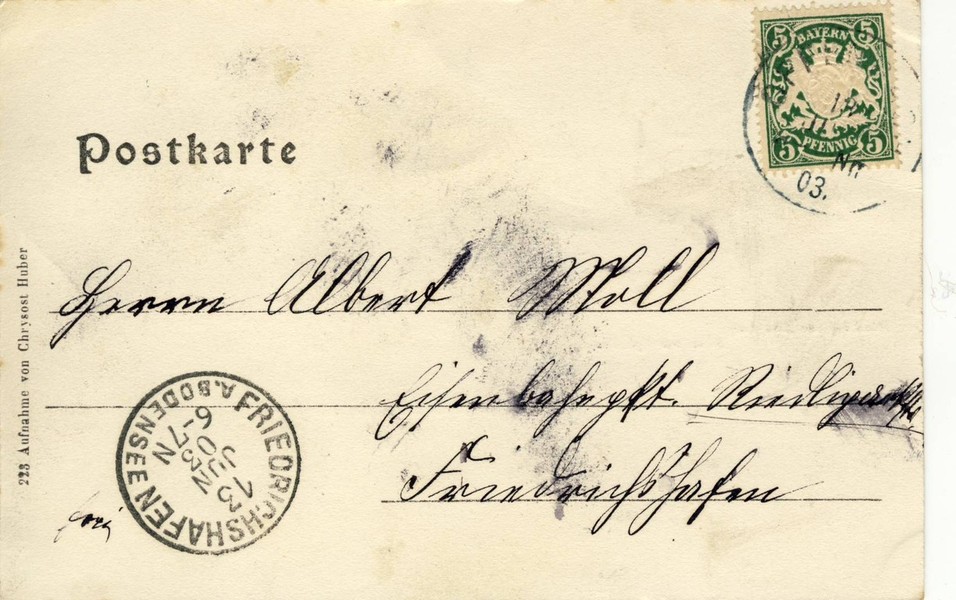 5 BAYERN 5
5 PFENNIG 5
03.
Postkarte
Herrn Albert Moll
Friedrichshafen
FRIEDRICHSHAFEN A.BODENSEE
13 JUN 03
6-7 N
frei
223 Aufnahme von Chrysost Huber